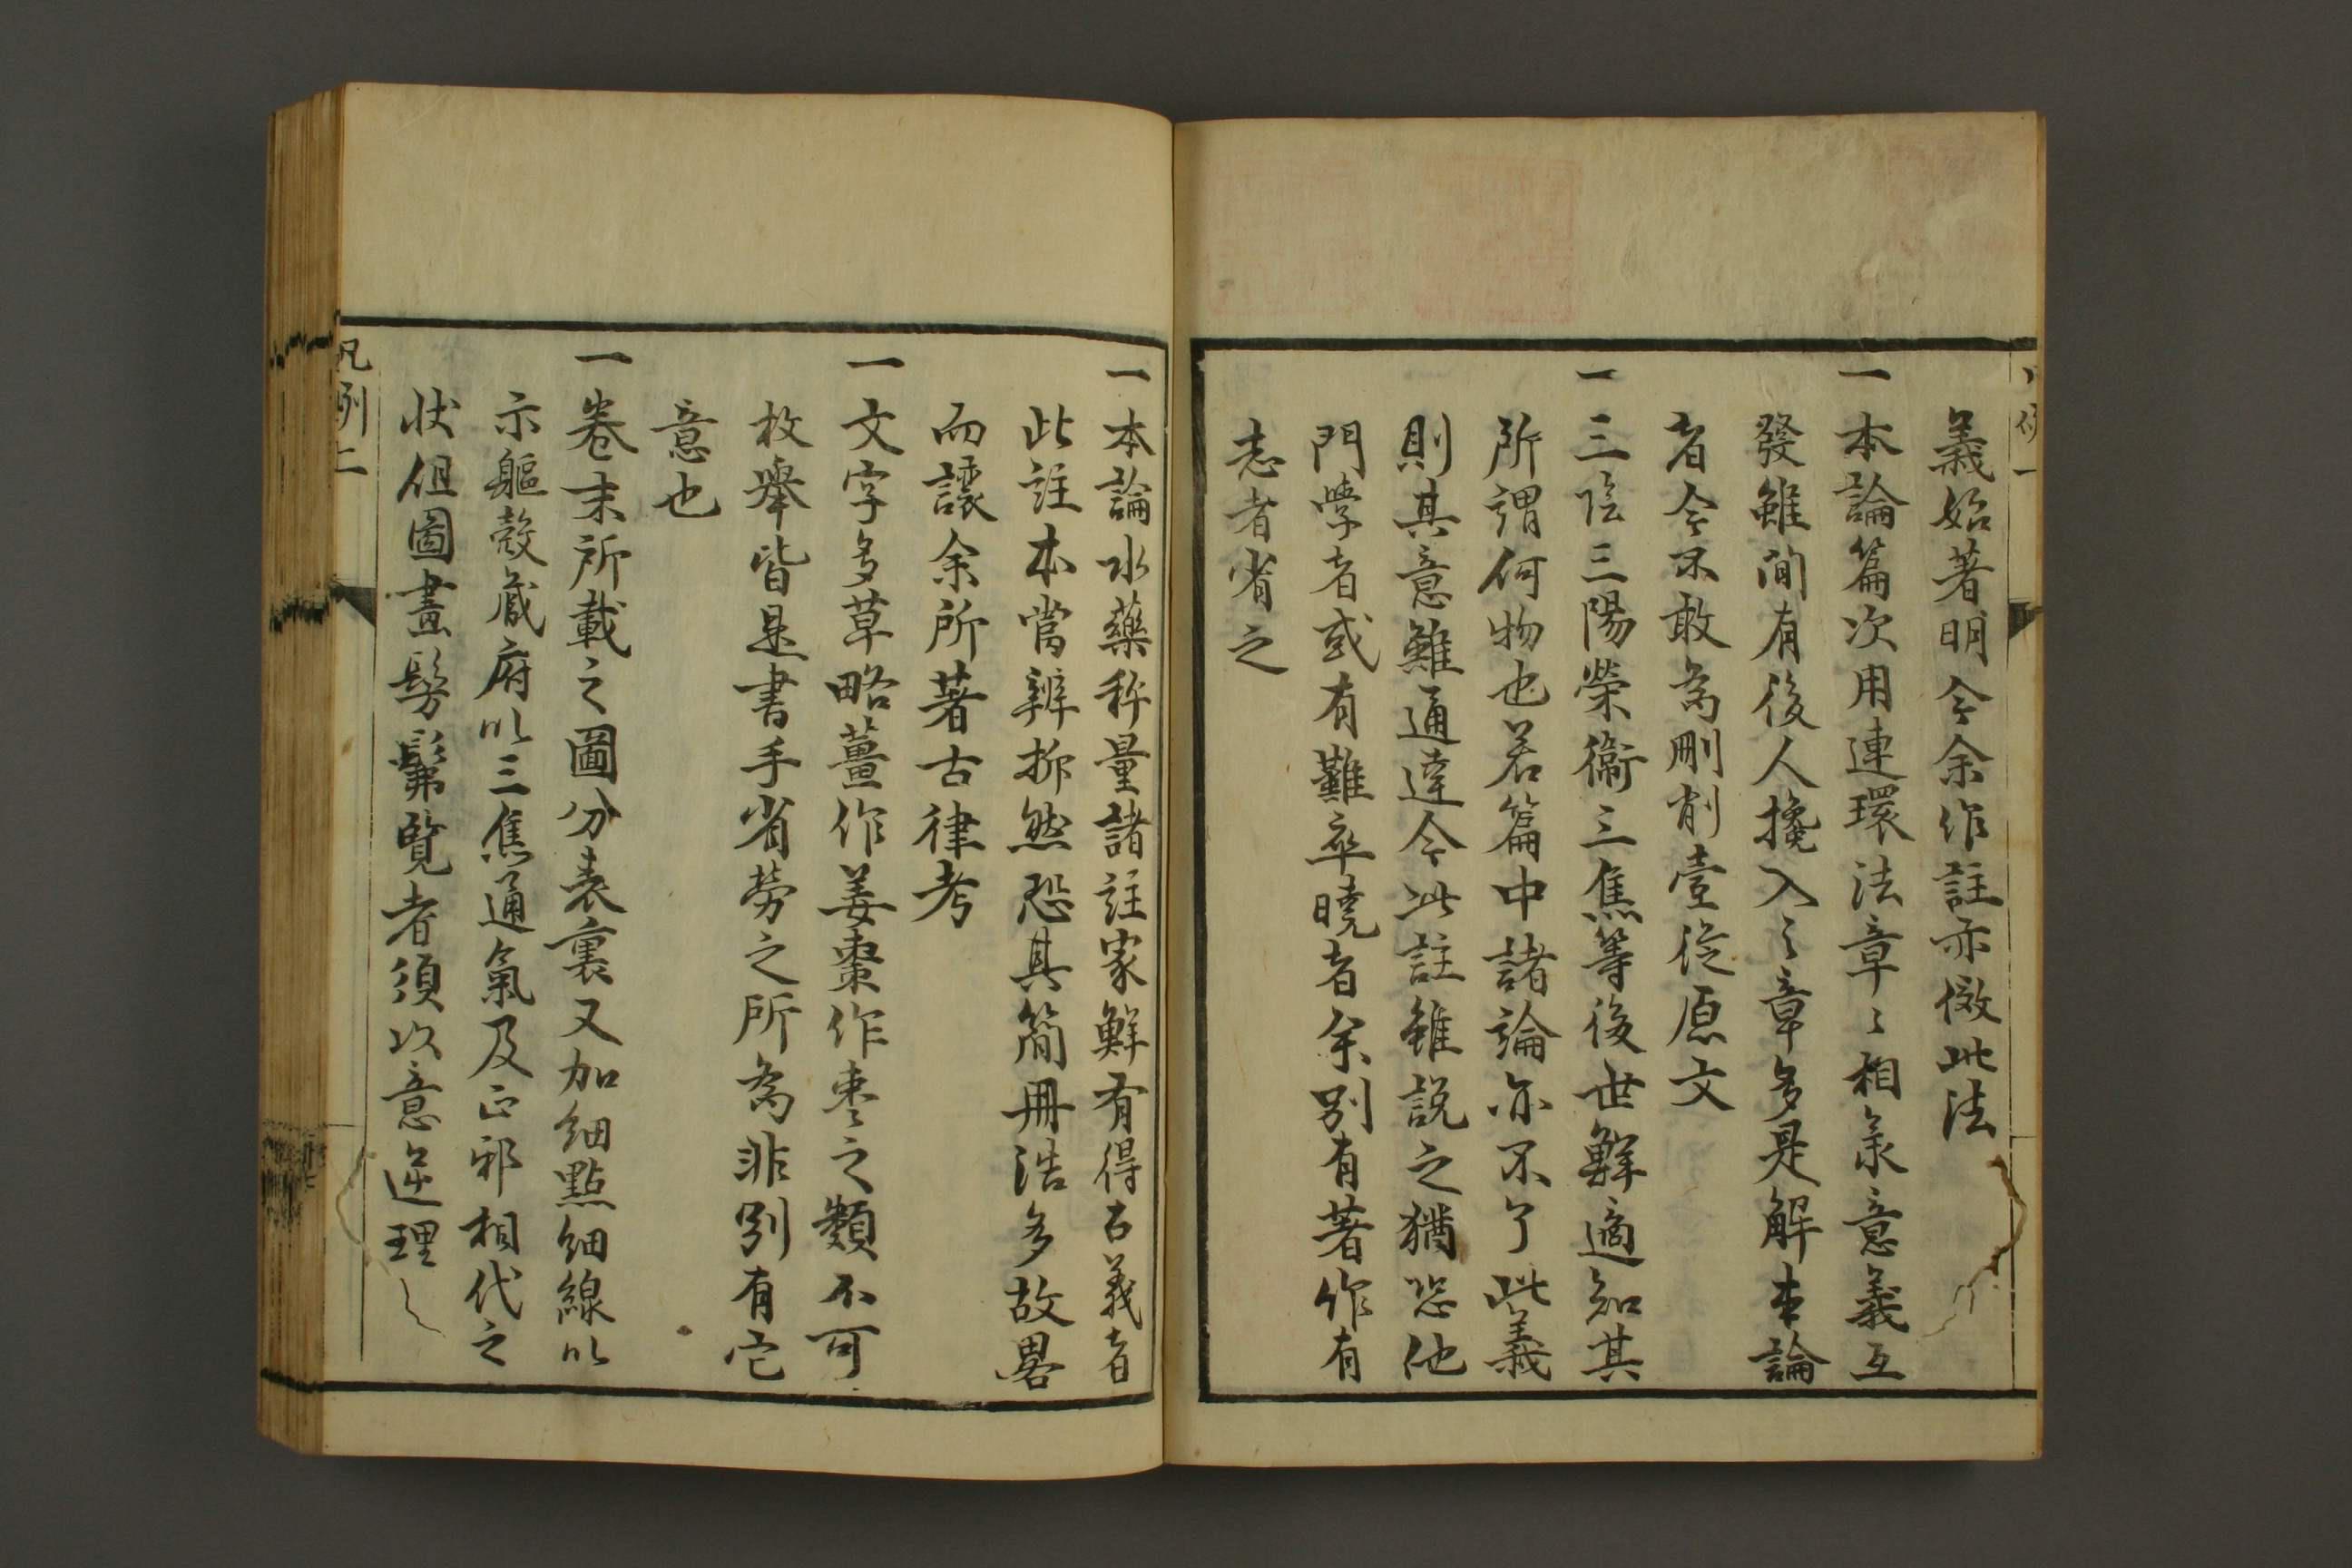 義始著明今余作註亦倣此法
一本論篇次用連環法章〻相承意義互
發雖間有後人攙入之章多是解本論
者今不敢為刪削壹従原文
一三陰三陽榮衛三焦等後世鮮適知其
所謂何物也若篇中諸論亦不了此義
則其意難通達今此註雖説之猶恐他
門學者或有難卒曉者余別有著作有
志者省之
一本論水藥称量諸註家鮮有得古義者
此註本當辨抑然恐其簡冊浩多故畧
而讓余所著古律考
一文字多草略薑作姜棗作枣之類不可
枚舉皆是書手省勞之所為非別有它
意也
一卷末所載之圖分表裏又加細點細線以
示軀殻蔵府以三焦通氣及正邪相代之
状但圖畫髣髴覽者須以意逆理
凡例二